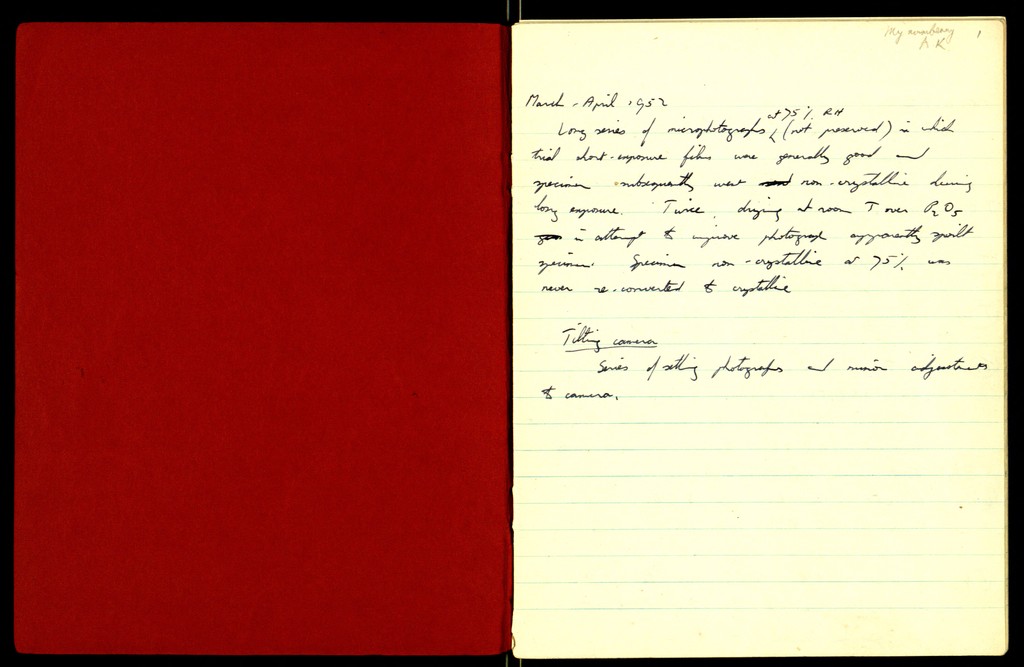 My numbering 1
A K
March - April 1952
at 75% RH
Long series of microphotographs (not preserved) in which
trial short-exposure films were generally good and
specimen subsequently went non-crystalline during
long exposure. Twice, drying at room T over P2O5
in attempt to improve photograph apparently spoilt
specimen. Specimen non-crystalline at 75% was
never re-converted to crystalline
Tilting camera
Series of setting photographs and minor adjustments
to camera.